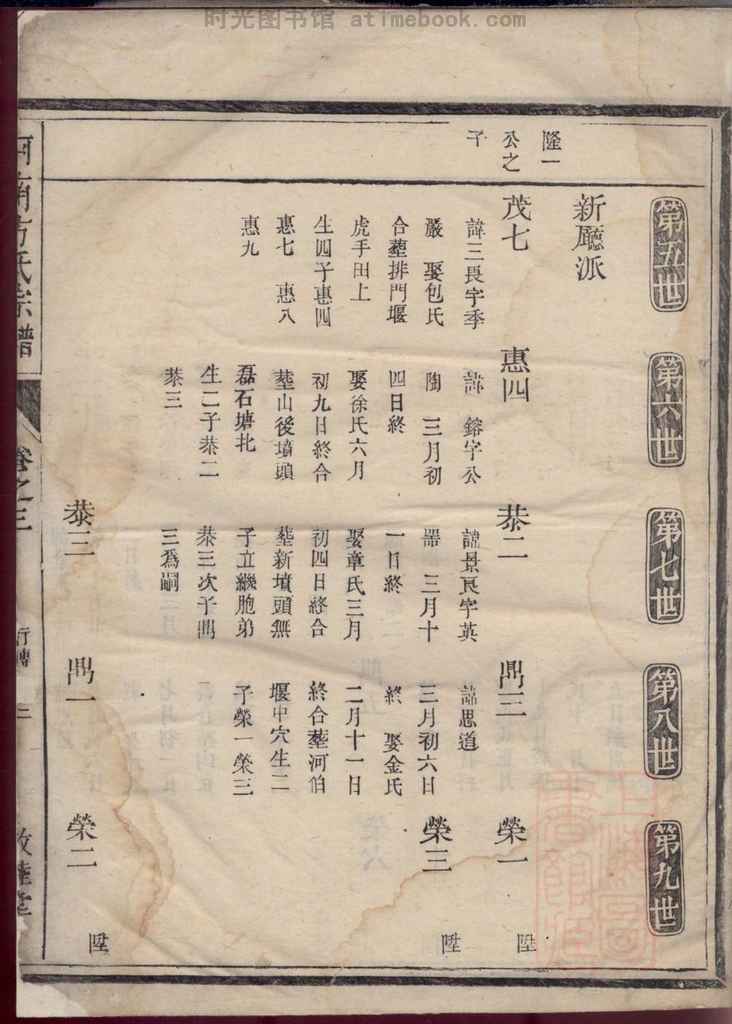 时光图书馆 atimebook.com
第五世
第六世
第七世
第八世
第九世
新廳派
隆一
公之
子
茂七
諱三畏字季
嚴 娶包氏
合塟排門堰
虎手田上
生四子惠四
惠七 惠八
惠九
惠四
諱鎔字公
陶 三月初
四日終
娶徐氏六月
初九日終合
塟山後墻頭
磊石塘北
生二子恭二
恭三
恭二
諱景良字英
三月十
一日終
娶章氏三月
初四日終合
塟新墳頭無
子立繼胞弟
恭三次子鼎
三爲嗣
鼎三
諱思道
三月初六日
終 娶金氏
二月十一日
終合塟河伯
堰中穴生二
子榮一榮三
榮一
陞
榮三
陞
恭三
鼎一
榮二
陞
河南方氏宗譜
卷之三
行傳
二
敦睦堂